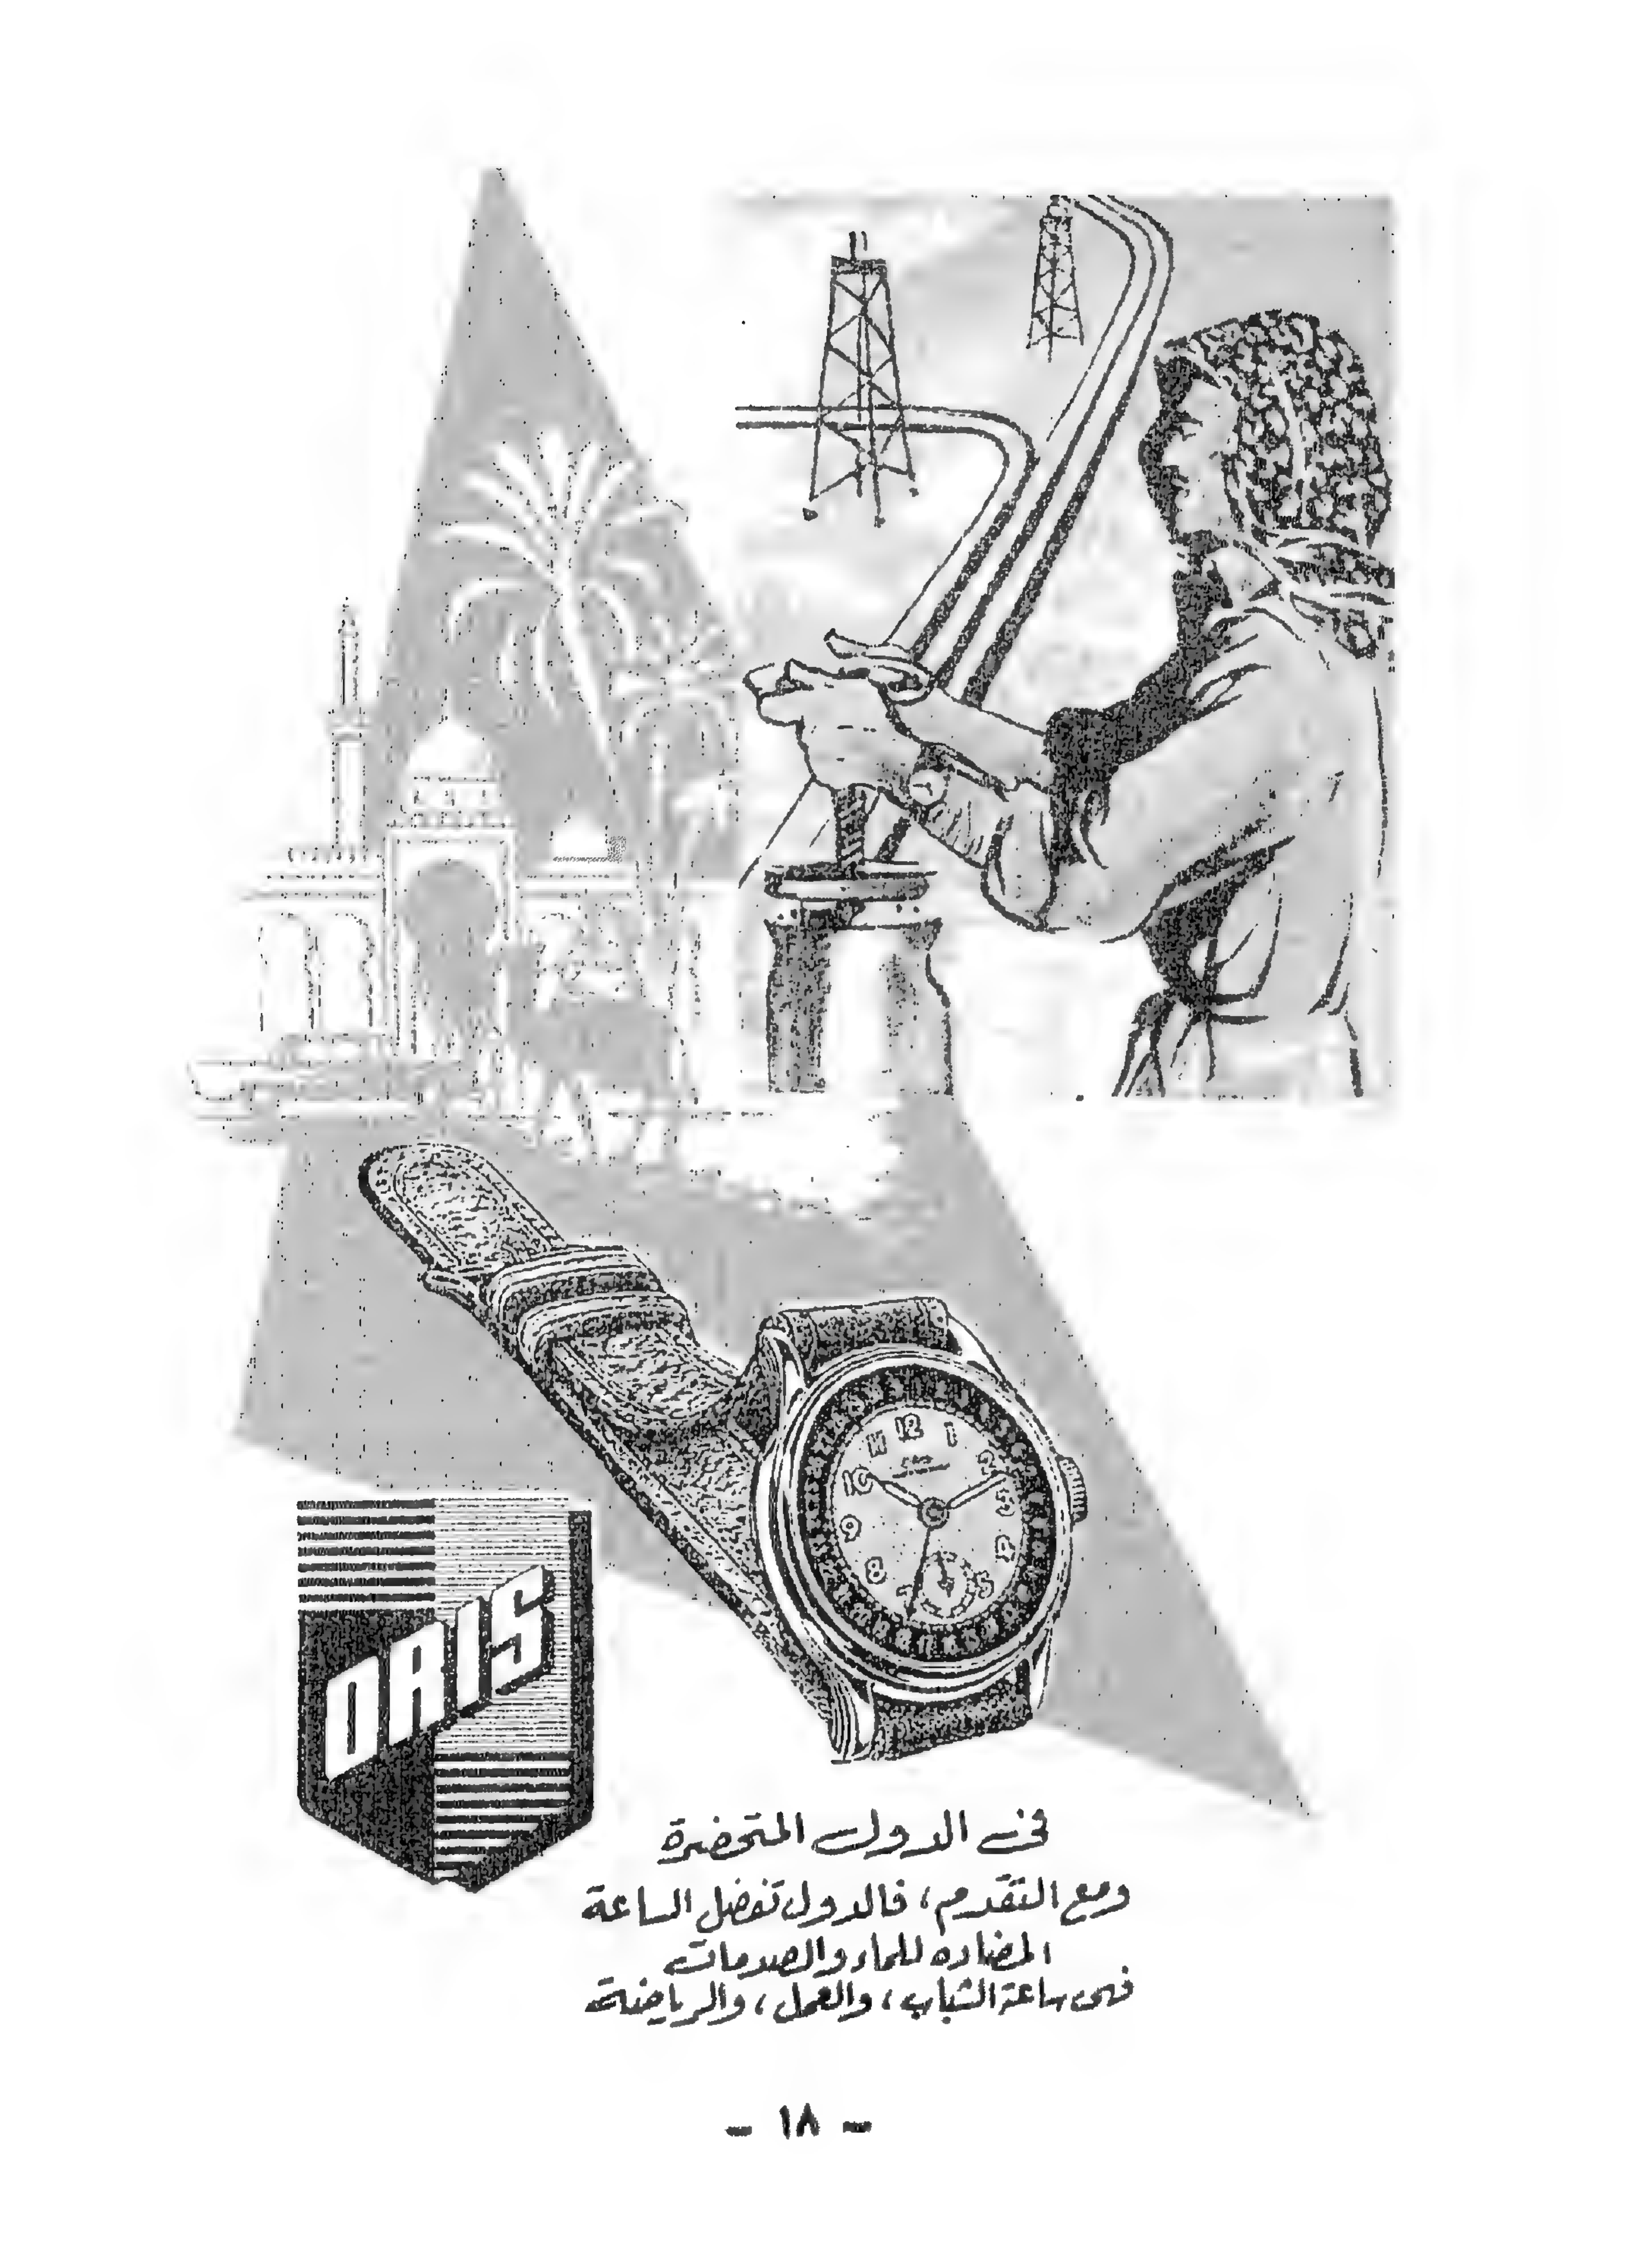 12
1
2
3
4
5
7
8
9
10
11
ORIS
فى الدول المتحضرة
ومع التقدم، فالدول تفضل الساعة
المضاده للماء والصدمات
فهى ساعة الشباب، والعمل، والرياضة
- ١٨ -